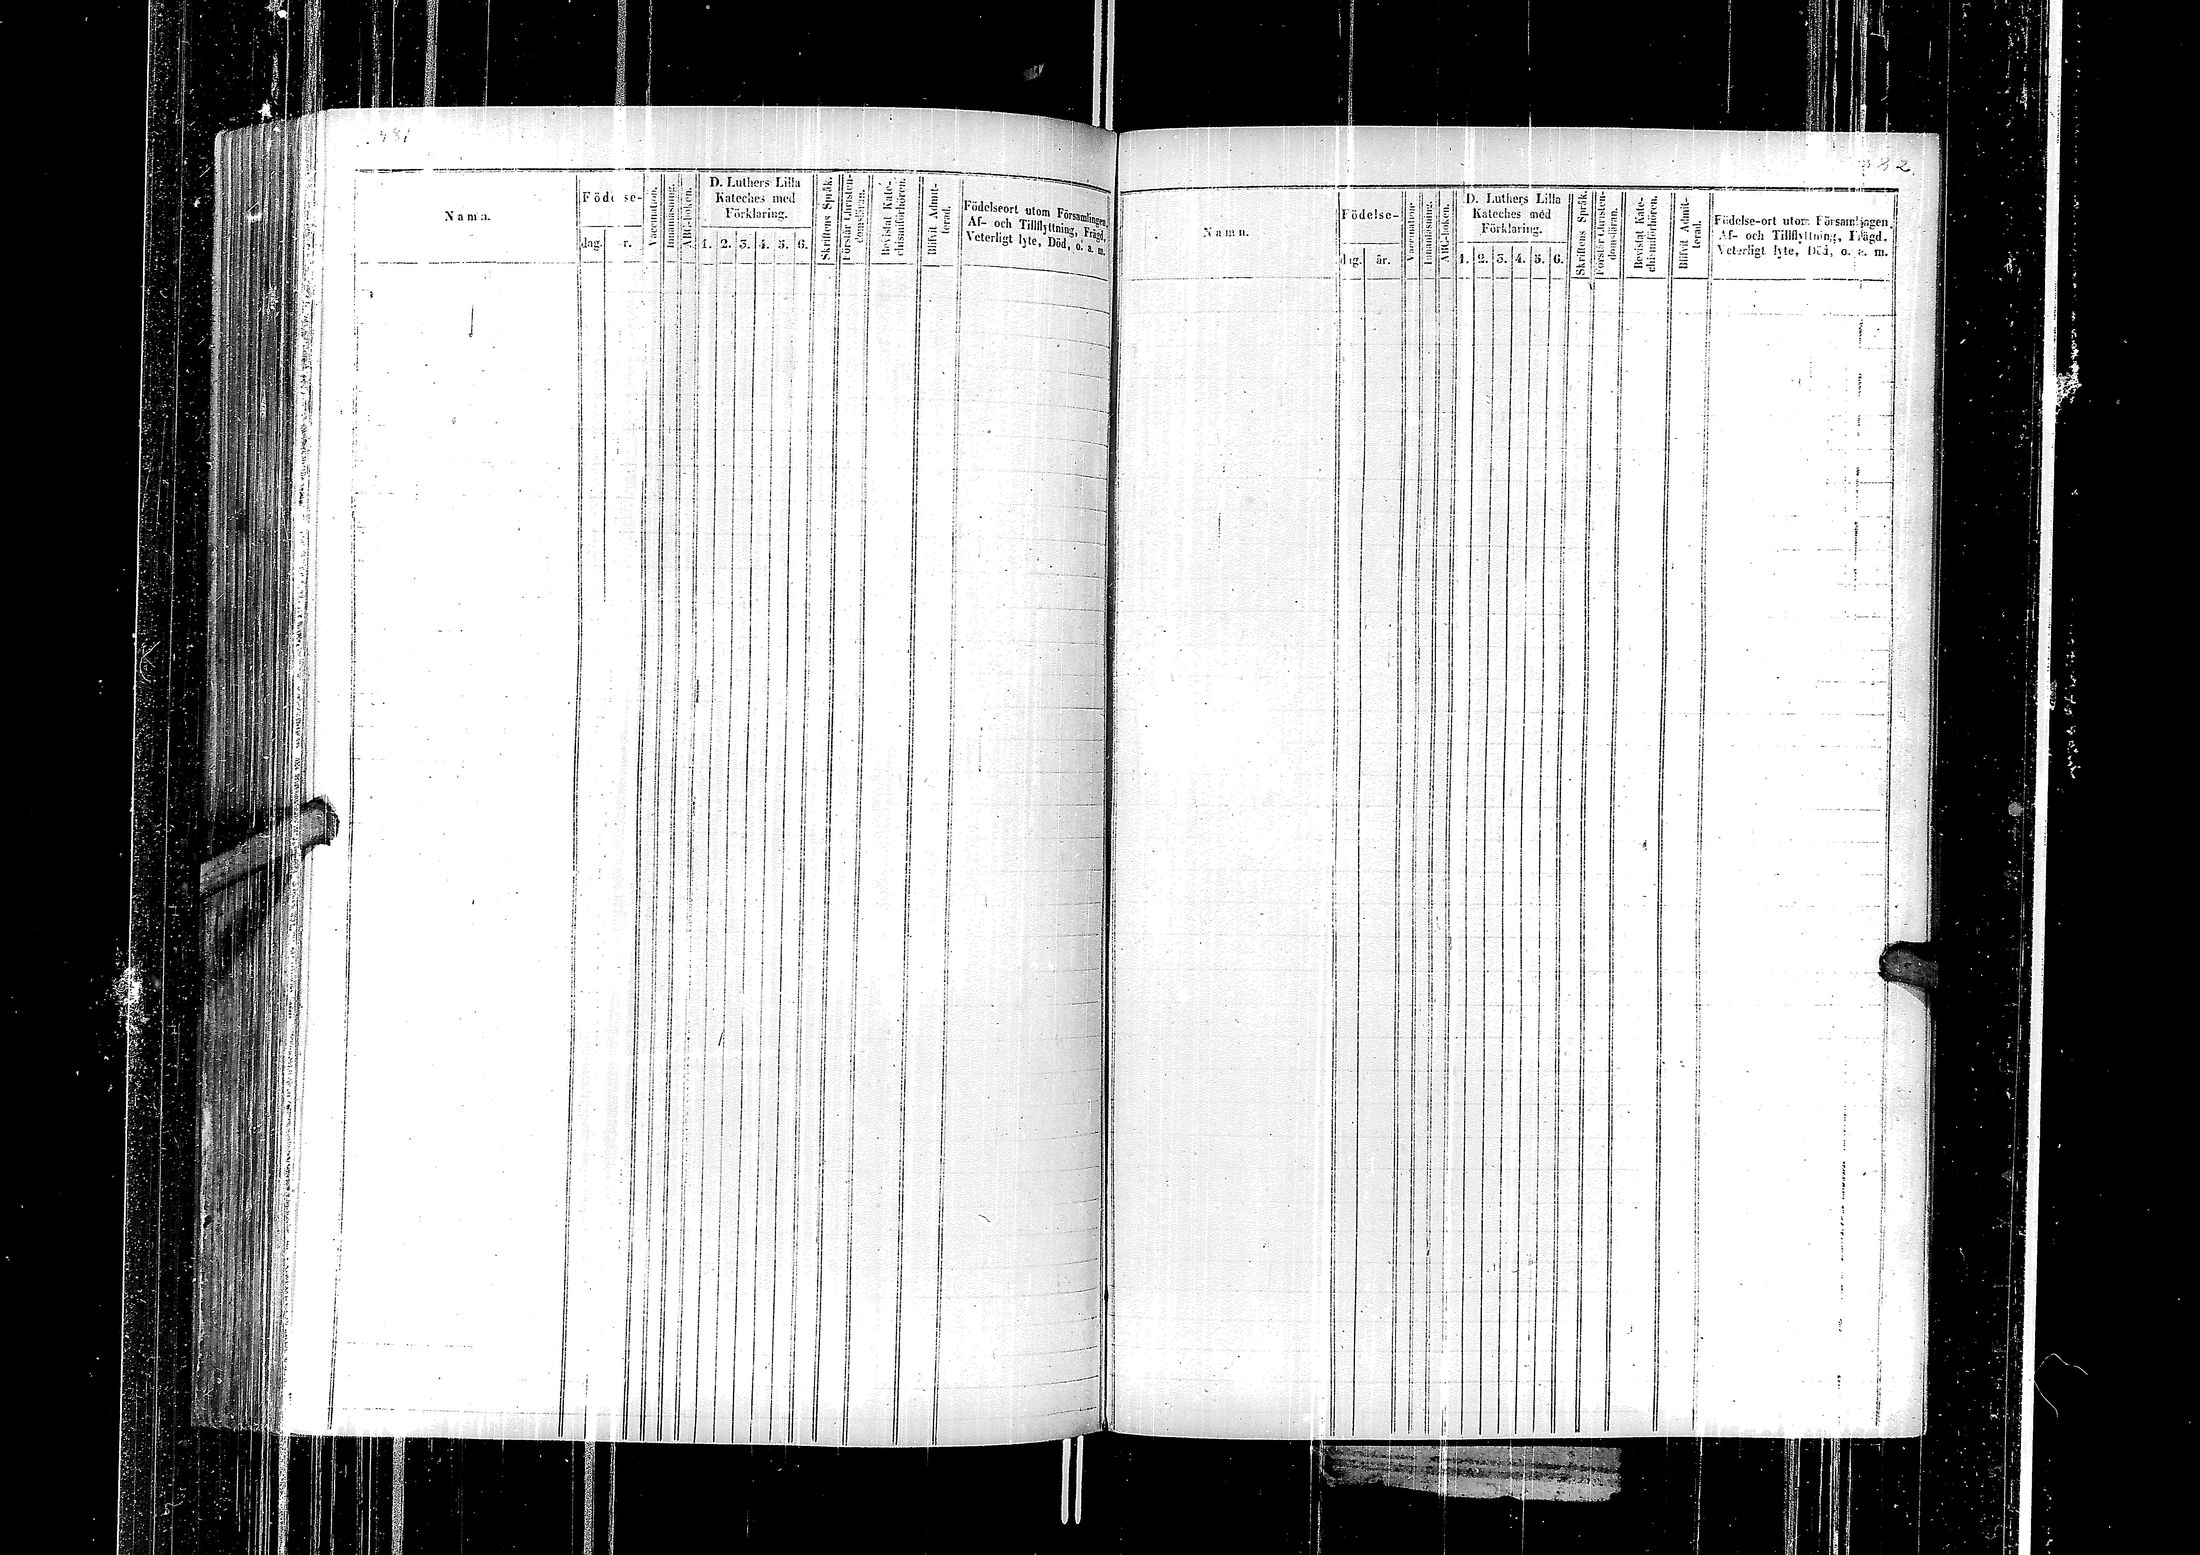 481
Namn.
Födelse-
dag.
r.
Vaccination.
Innanläsning.
ABC-boken.
D. Luthers Lilla
Kateches med
Förklaring.
1. 2. 3. 4. 5. 6.
Skriftens Språk.
Förstår Christen-
domsläran.
Bevistat Kate-
chismiförhören.
Blifvit Admit-
terad.
Födelseort utom Församlingen,
Af- och Tillflyttning, Frägd,
Veterligt lyte, Död, o. a. m.
482
Namn.
Födelse-
dag.
år.
Vaccination
Innanläsning.
ABC-boken.
D. Luthers Lilla
Kateches med
Förklaring.
1. 2. 3. 4. 5. 6.
Skriftens Språk.
Förstår Christen-
domsläran.
Bevistat Kate-
chismiförhören.
Blifvit Admit-
terad.
Födelse-ort utom Församlingen,
Af- och Tillflyttning, Frägd,
Veterligt lyte, Död, o. a. m.